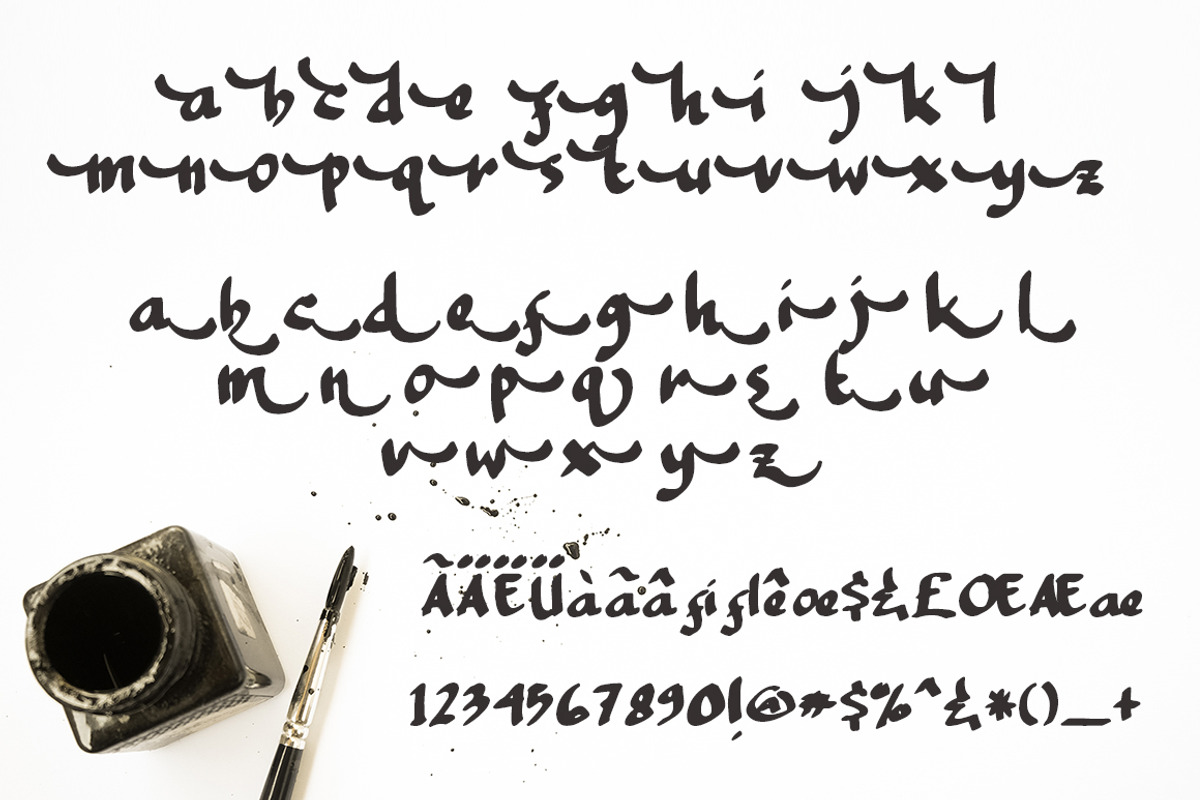 a b c d e f g h i j k l
m n o p q r s t u v w x y z
a b c d e f g h i j k l
m n o p q r s t u
v w x y z
ÃÄËÜàãâfiflêœ$&£ŒÆæ
1234567890!@#$%^&*()_+